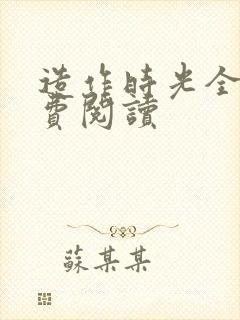 造作時光全
費閱讀
蘇某某